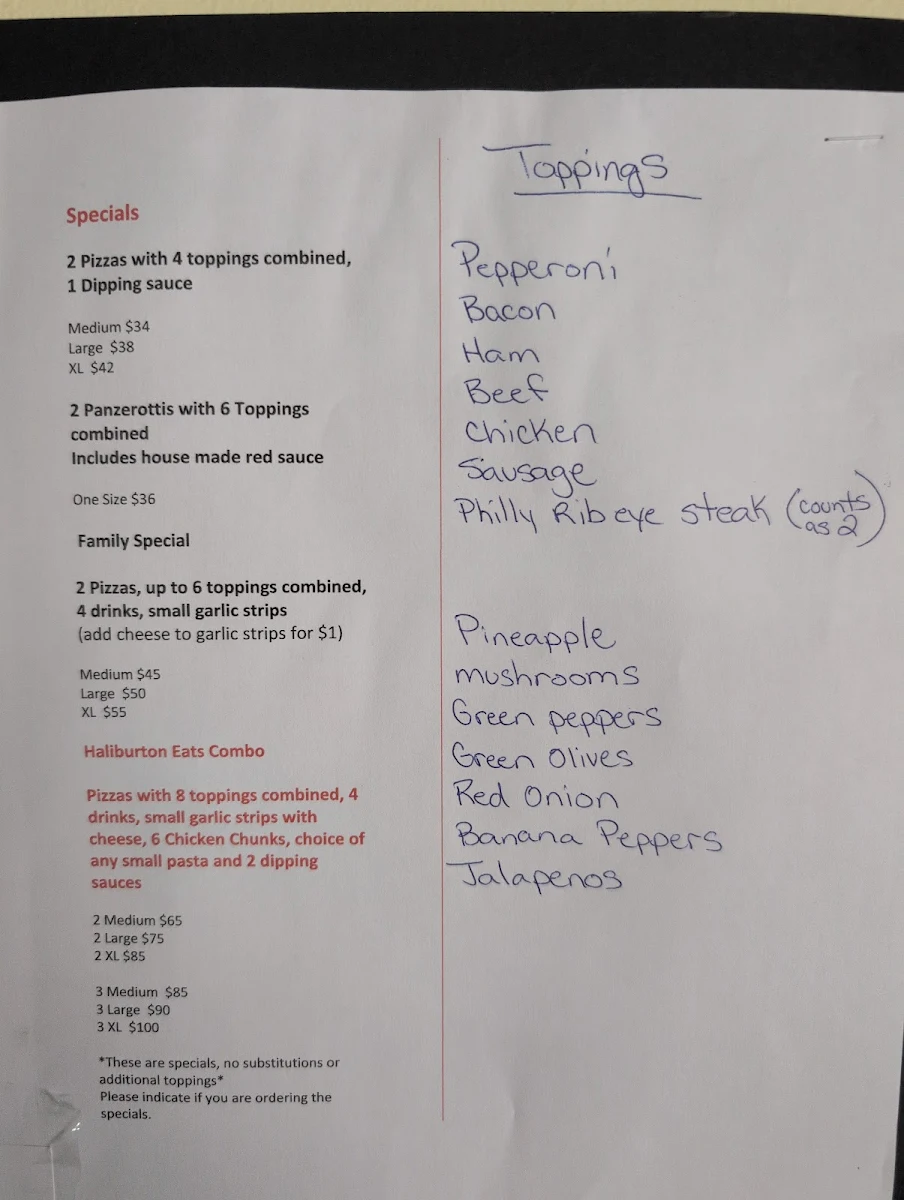 Specials
2 Pizzas with 4 toppings combined,
1 Dipping sauce
Medium $34
Large $38
XL $42
2 Panzerottis with 6 Toppings
combined
Includes house made red sauce
One Size $36
Family Special
2 Pizzas, up to 6 toppings combined,
4 drinks, small garlic strips
(add cheese to garlic strips for $1)
Medium $45
Large $50
XL $55
Haliburton Eats Combo
Pizzas with 8 toppings combined, 4
drinks, small garlic strips with
cheese, 6 Chicken Chunks, choice of
any small pasta and 2 dipping
sauces
2 Medium $65
2 Large $75
2 XL $85
3 Medium $85
3 Large $90
3 XL $100
*These are specials, no substitutions or
additional toppings*
Please indicate if you are ordering the
specials.
Toppings
Pepperoni
Bacon
Ham
Beef
Chicken
Sausage
Philly Rib eye steak (counts
as 2)
Pineapple
mushrooms
Green peppers
Green Olives
Red Onion
Banana Peppers
Jalapenos